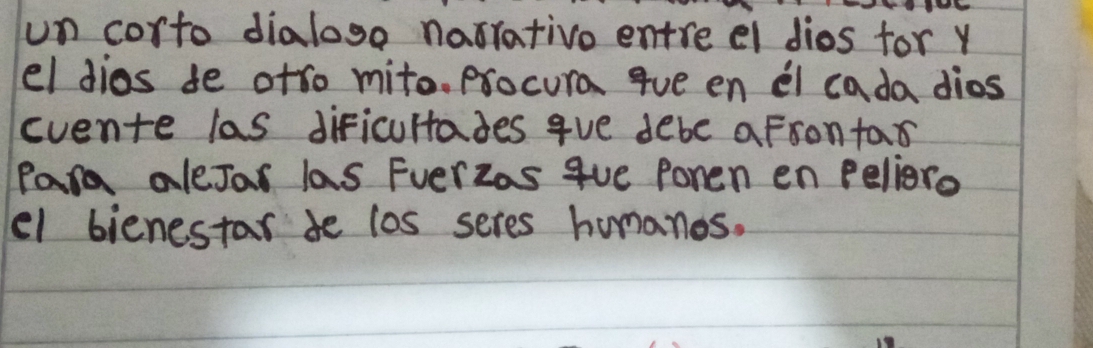 un corto dialogo narrativo entre el dios tor y
el dios de otro mito. Procura que en él cada dios
cuente las dificultades que debe afrontar
Para alejar las Fuerzas que Ponen en Peligro
el bienestar de los seres humanos.